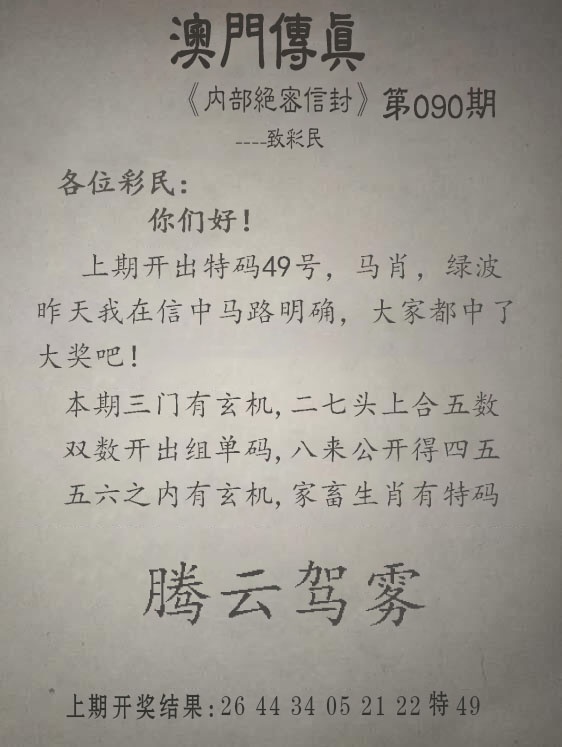 澳門傳真
《内部絕密信封》第090期
----致彩民
各位彩民：
你们好！
上期开出特码49号，马肖，绿波
昨天我在信中马路明确，大家都中了
大奖吧！
本期三门有玄机,二七头上合五数
双数开出组单码,八来公开得四五
五六之内有玄机,家畜生肖有特码
腾云驾雾
上期开奖结果:26 44 34 05 21 22 特 49